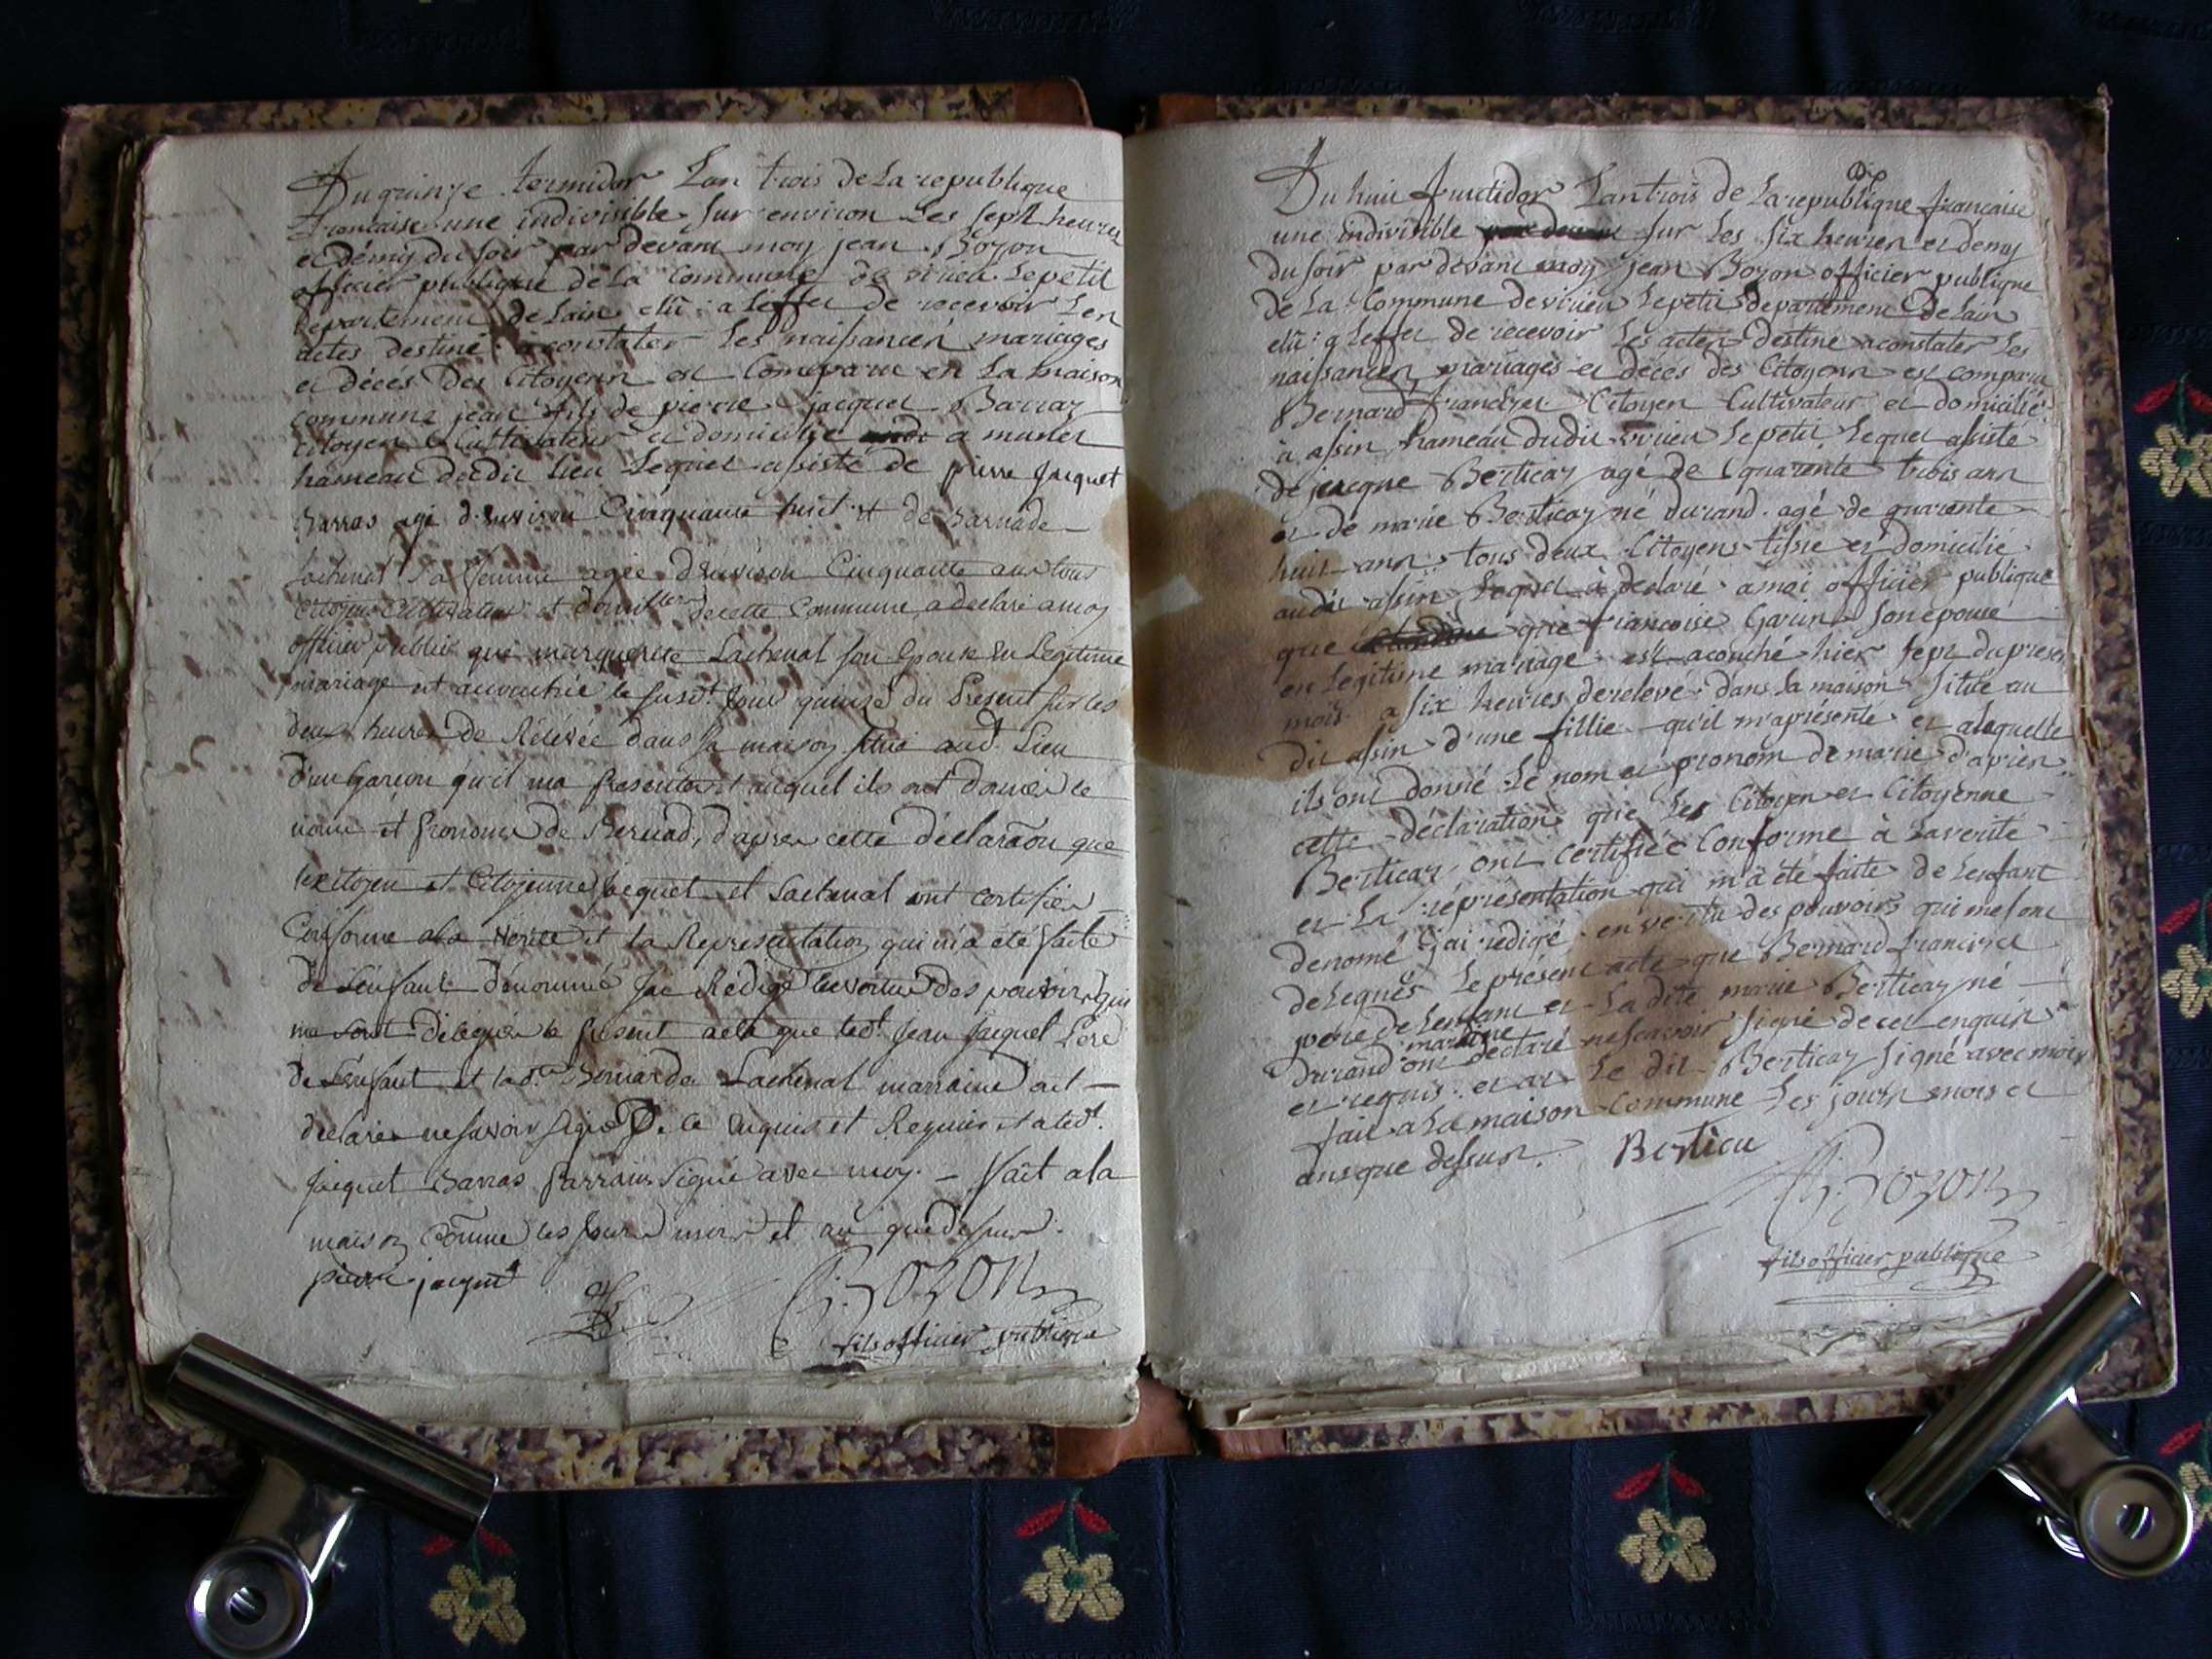 Du quinze termidor Lan trois de La republique
francaise une indivisible sur environ Les sept heures
et démy du soir par devant moy jean Bozon
officier publique de la Commune de virieu Le petit
departement de Lain elû a Leffet de recevoir Les
actes destiné a constater Les naissancés mariages
et décés Des Citoyens est Comparu en La maison
commune jean fils de pierre jacquet Barraz
Citoyen Cultivateur et domicilié a munet
hameau dudit lieu Lequel assisté de pierre Jacquet
Barras agé d'environ Cinquante huit et de Barnade
Lachenal sa femme agée d'environ Cinquante ans tous
Citoyens Cultivateurs et de cette Commune, a declaré a moy
officier public que marguerite Lachenal son Epouse en Legitime
mariage est accouchée le susd.t Jour quinze du Present sur les
deux heures de Rélévée dans sa maison située aud. Lieu
d'un Garcon qu'il ma presenté et auquel ils ont donné le
nom et pronom de Bernad, d'apres cette déclaraôn que
les citoyen et Citoyenne Jacquet et Lachenal ont certifiée
Conforme a la Verité et la Representation qui m'a été faite
de L'enfant dénommé Jae Rédigé en vertu des pouvoirs qui
me sont délégués le present acte que led.t Jean Jacquet Pere
de L'enfant et lad. Bernarde Lachenal marraine ont
declaré ne savoir signé de ce enquis et Requis et a led.t
Jacquet Barras Parrain signé avec moy. – fait a la
maison comûne les Jour mois et an que dessus.
pierre jacquet
J. Bozon
fils officier publique
Du huit fructidor Lan trois de La republique francaise
une indivisible sur Les six heures et demy
du soir par dévant moy jean Bozon officier publique
de La Commune de virieu Le petit departement de Lain
elû a Leffet de recevoir Les actes destiné a constater Les
naissancés mariages et décés des Citoyens est comparu
Bernard francizet Citoyen Cultivateur et domicilié
à assin hameau dudit virieu Le petit Lequel assisté
de jacque Berticaz agé de quarente trois ans
et de marie Berticaz né durand agé de quarente
huit ans tous deux Citoyens et domicilié
audit assin Lequel à declaré a moi officier publique
que que francoise Garin son epouse
en Legitime mariage est acouché hier sept du present
mois a six heures de relevé dans sa maison situé au
dit assin d'une fillie qu'il m'apresenté et alaquelle
ils ont donné Le nom et pronom de marie d'apres
cette déclaration que Les Citoyen et Citoyenne
Berticaz ont certifiéé Conforme à La verité
et La réprésentation qui m'a été faite de Lenfant
denomé j'ai redigé en vertu des pouvoirs qui me sont
delegués Le présent acte que Bernard francizet
pere de Lenfant et La dite marie Berticaz né
Durand maraine ont déclaré ne scavoir signé de cet enquis
et requis et at Le dit Berticaz signé avec mois
fait a La maison commune Les jours mois et
ans que dessus. Berticu
J. Bozon
fils officier publique